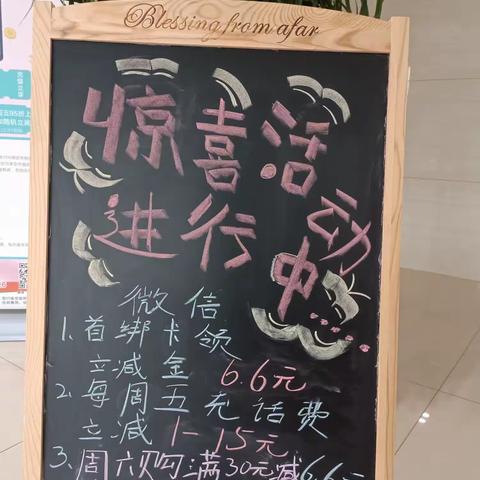 Blessing from afar
惊喜活动
进行中...
微信
1、首绑卡领
立减金6.6元
2、每周五充话费
立减1-15元
3、周六购满30元减6.6元